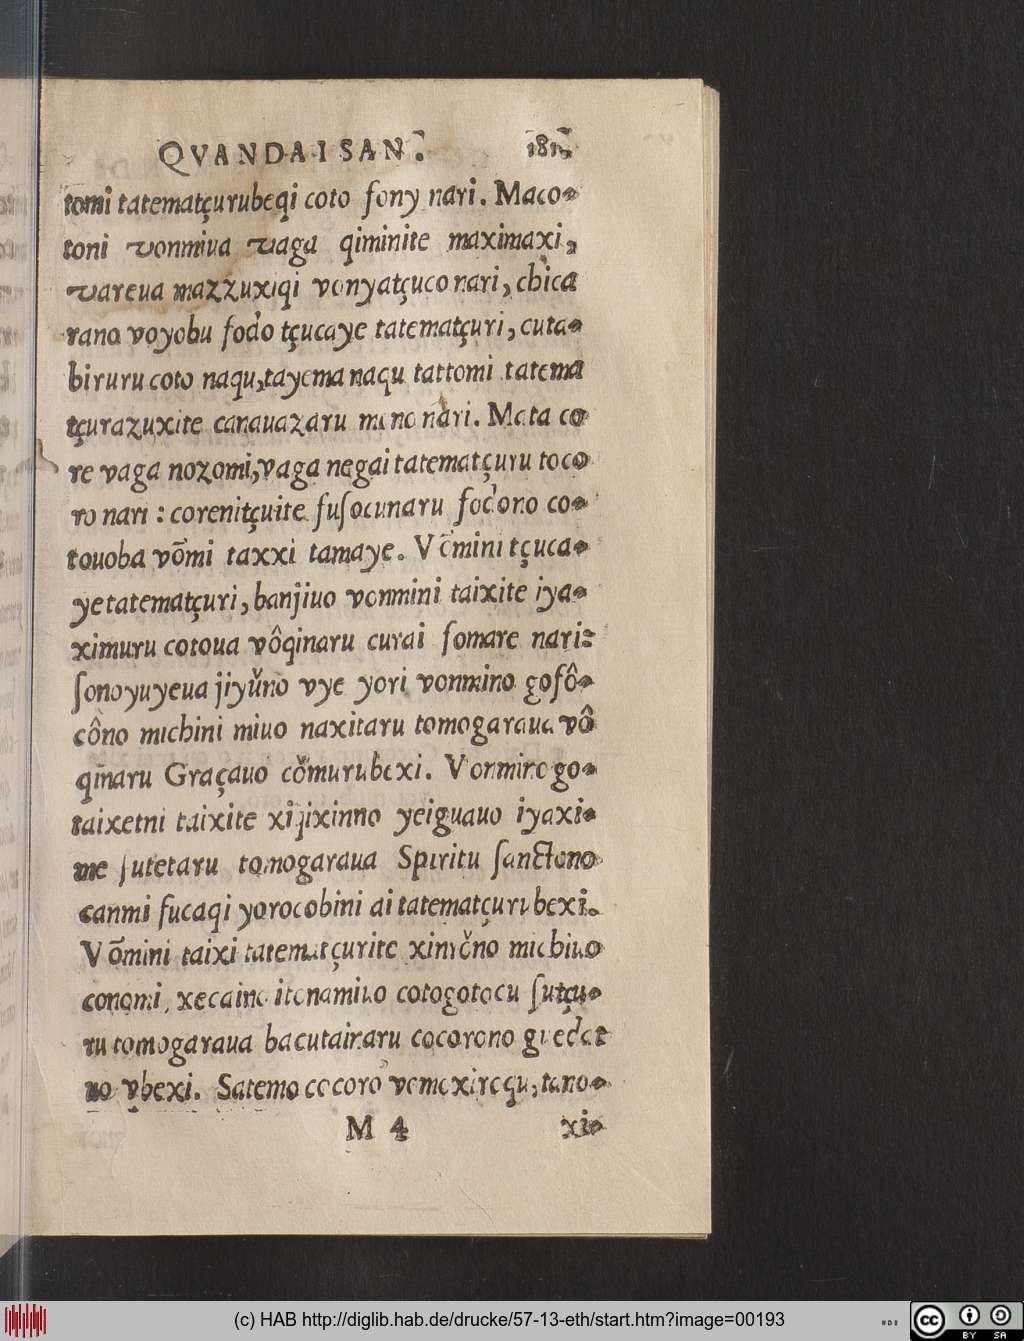 QVANDAI SAN.
tomi tatematçurubeqi coto fony nari. Maco-
toni vonmiua vaga qiminite maximaxi,
vareua mazzuxiqi vonyatçuco nari, chica
rano voyobu fodo tçucaye tatematçuri, cuta-
biruru coto naqu, tayema naqu tattomi tatema
tçurazuxite canauazaru mono nari. Mata co
re vaga nozomi, vaga negai tatematçuru toco
ro nari : corenitçuite fusocunaru fodono co-
touoba võmi taxxi tamaye. Võmini tçuca-
ye tatematçuri, banjiuo vonmini taixite iya-
ximuru cotoua vôqinaru curai fomare nari:
sonoyuyeua jiyŭno vye yori vonmino gofô-
côno michini miuo naxitaru tomogaraua vô
qinaru Graçauo cŏmurubexi. Vonmino go-
taixetni taixite xijixinno yeiguauo iyaxi-
me sutetaru tomogaraua Spiritu sanctono
canmi fucaqi yorocobini ai tatematçurubexi.
Võmini taixi tatematçurite xinrŏno michiuo
conomi, xecaino itonamiuo cotogotocu sutçu-
ru tomogaraua bacutainaru cocorono guedat
uo vbexi. Satemo cocoro vomoxirequ, tano-
M 4
xi-